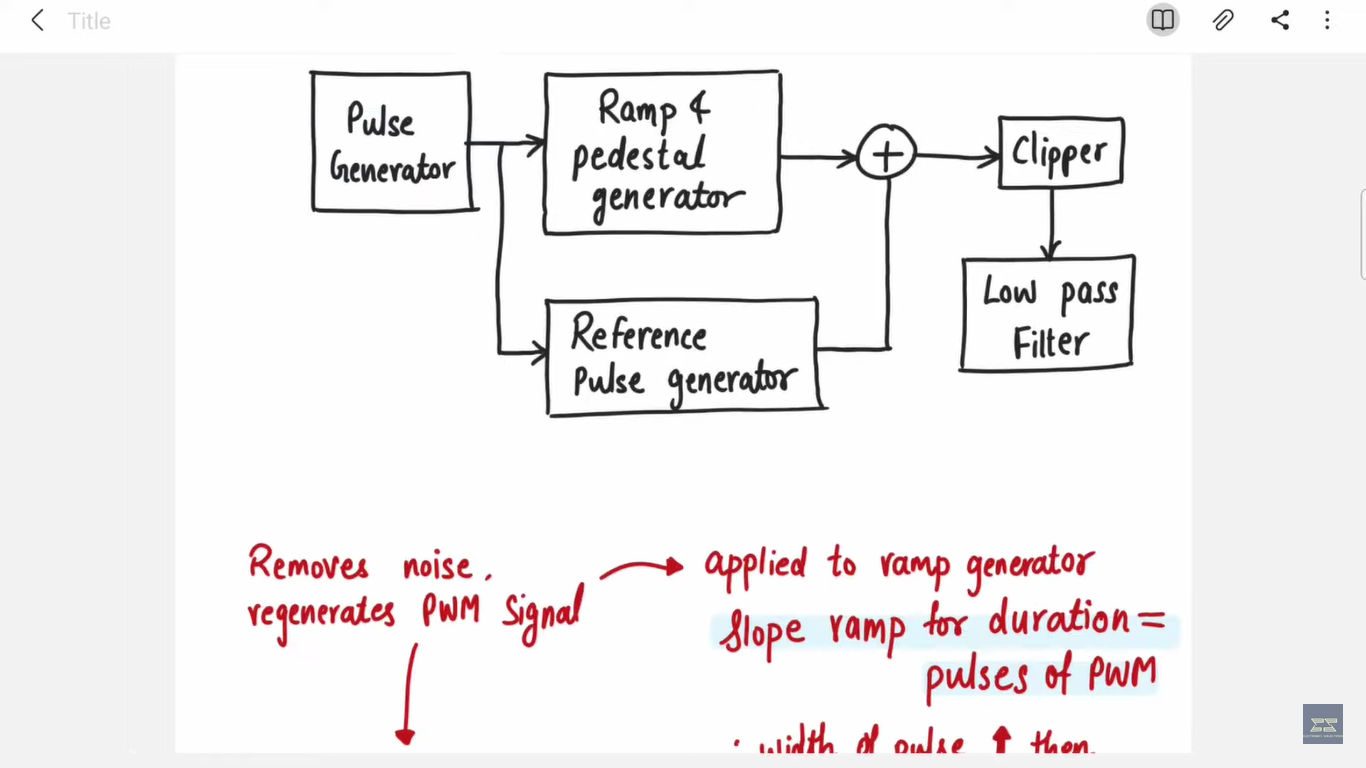 Title
Pulse
Generator
Ramp &
pedestal
generator
+
Clipper
Low pass
Filter
Reference
Pulse generator
Removes noise.
regenerates PWM Signal
applied to ramp generator
Slope ramp for duration =
pulses of PWM
: width of pulse ↑ then